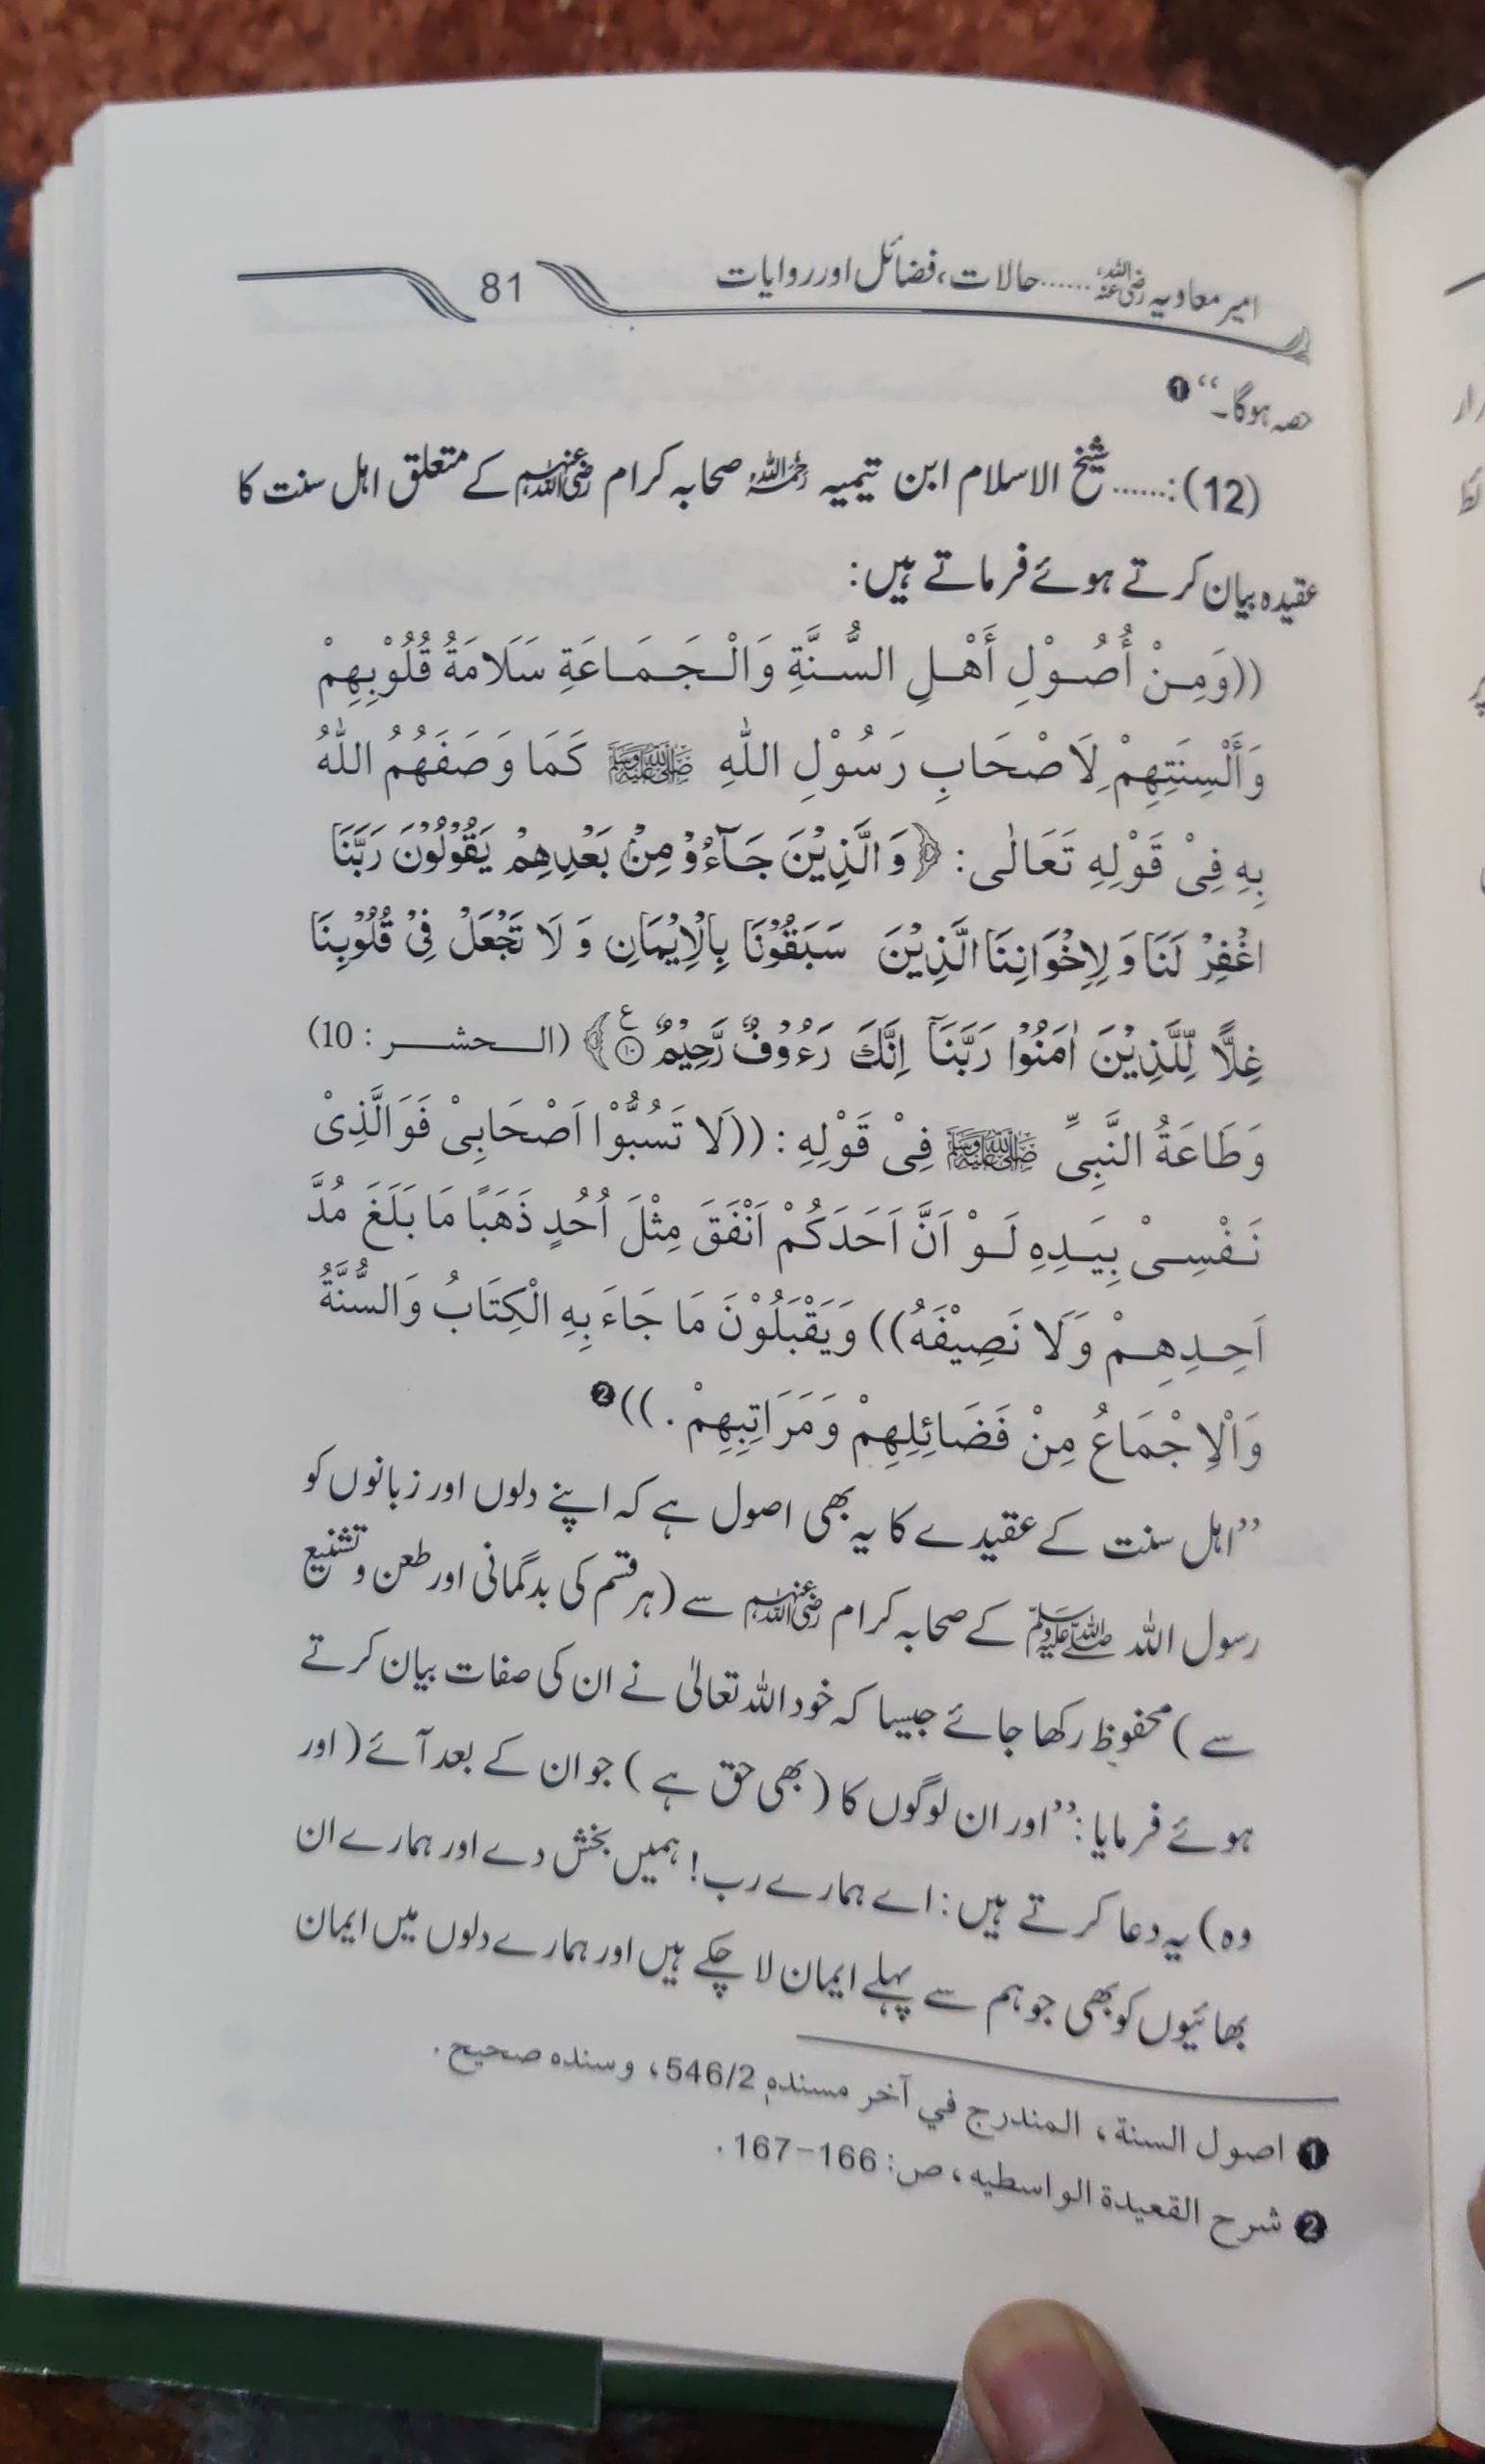 امیر معاویہ رضی اللہ عنہ ...... حالات، فضائل اور روایات
81
حصہ ہوگا۔“ ❶
(12):...... شیخ الاسلام ابن تیمیہ رحمہ اللہ صحابہ کرام رضی اللہ عنہم کے متعلق اہل سنت کا
عقیدہ بیان کرتے ہوئے فرماتے ہیں:
((وَمِنْ أُصُوْلِ أَهْلِ السُّنَّةِ وَالْجَمَاعَةِ سَلَامَةُ قُلُوْبِهِمْ
وَأَلْسِنَتِهِمْ لِاَصْحَابِ رَسُوْلِ اللّٰهِ ﷺ كَمَا وَصَفَهُمُ اللّٰهُ
بِهِ فِىْ قَوْلِهِ تَعَالٰى: ﴿وَالَّذِيْنَ جَآءُوْ مِنْۢ بَعْدِهِمْ يَقُوْلُوْنَ رَبَّنَا
اغْفِرْ لَنَا وَ لِاِخْوَانِنَا الَّذِيْنَ سَبَقُوْنَا بِالْاِيْمَانِ وَ لَا تَجْعَلْ فِيْ قُلُوْبِنَا
غِلًّا لِّلَّذِيْنَ اٰمَنُوْا رَبَّنَاۤ اِنَّكَ رَءُوْفٌ رَّحِيْمٌ ۧ۝۱۰﴾ (الحشر: 10)
وَطَاعَةُ النَّبِىِّ ﷺ فِىْ قَوْلِهِ: ((لَا تَسُبُّوْا اَصْحَابِىْ فَوَالَّذِىْ
نَفْسِىْ بِيَدِهِ لَوْ اَنَّ اَحَدَكُمْ اَنْفَقَ مِثْلَ اُحُدٍ ذَهَبًا مَا بَلَغَ مُدَّ
اَحِدِهِمْ وَلَا نَصِيْفَهُ)) وَيَقْبَلُوْنَ مَا جَاءَ بِهِ الْكِتَابُ وَالسُّنَّةُ
وَالْاِجْمَاعُ مِنْ فَضَائِلِهِمْ وَمَرَاتِبِهِمْ.)) ❷
”اہل سنت کے عقیدے کا یہ بھی اصول ہے کہ اپنے دلوں اور زبانوں کو
رسول اللہ ﷺ کے صحابہ کرام رضی اللہ عنہم سے (ہر قسم کی بدگمانی اور طعن و تشنیع
سے) محفوظ رکھا جائے جیسا کہ خود اللہ تعالیٰ نے ان کی صفات بیان کرتے
ہوئے فرمایا: ”اور ان لوگوں کا (بھی حق ہے) جو ان کے بعد آئے (اور
وہ) یہ دعا کرتے ہیں: اے ہمارے رب! ہمیں بخش دے اور ہمارے ان
بھائیوں کو بھی جو ہم سے پہلے ایمان لا چکے ہیں اور ہمارے دلوں میں ایمان
❶ اصول السنة، المندرج في آخر مسنده 546/2، وسنده صحيح.
❷ شرح القعيدة الواسطيه، ص: 166-167.